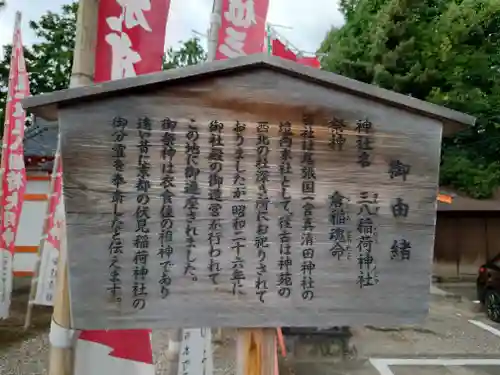 御由緒
神社名 三八稲荷神社
祭神 倉稲魂命
当社は尾張国一宮真清田神社の
境内末社として往古は神苑の
西北の杜深き所にお祀りされて
おりましたが昭和二十六年に
御社殿の御造営が行われて
この地に御遷座されました
御祭神は衣食住の祖神であり
遠い昔に京都の伏見稲荷神社の
御分霊を奉齋したと伝えます。